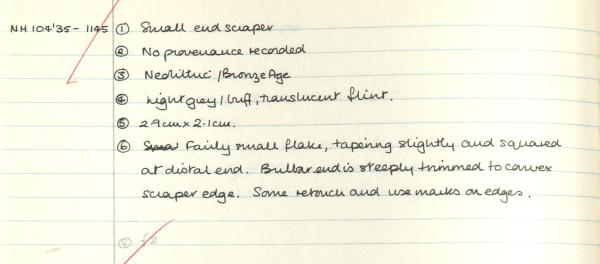 NH 104'35 - 1145 ① Small end scraper
② No provenance recorded
③ Neolithic / Bronze Age
④ Light grey / buff, translucent flint.
⑤ 2.9cm x 2.1cm.
⑥ Fairly small flake, tapering slightly and squared
at distal end. Bulbar end is steeply trimmed to convex
scraper edge. Some retouch and use marks on edges.